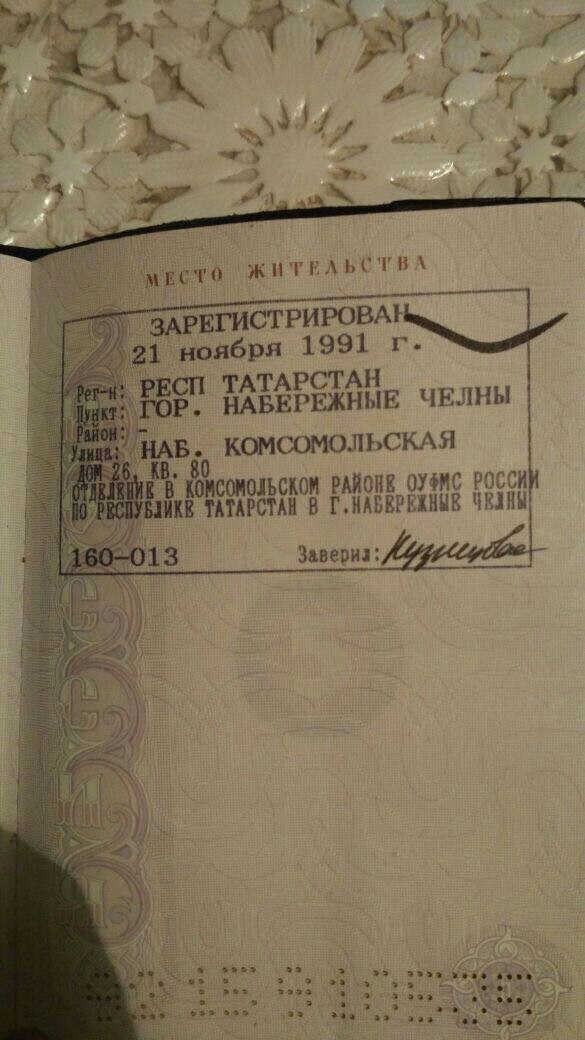 МЕСТО ЖИТЕЛЬСТВА
ЗАРЕГИСТРИРОВАН
21 ноября 1991 г.
Рег-н: РЕСП ТАТАРСТАН
Пункт: ГОР. НАБЕРЕЖНЫЕ ЧЕЛНЫ
Район: -
Улица: НАБ. КОМСОМОЛЬСКАЯ
ДОМ 26, КВ. 80
ОТДЕЛЕНИЕ В КОМСОМОЛЬСКОМ РАЙОНЕ ОУФМС РОССИИ
ПО РЕСПУБЛИКЕ ТАТАРСТАН В Г.НАБЕРЕЖНЫЕ ЧЕЛНЫ
160-013 Заверил: Кузнецова